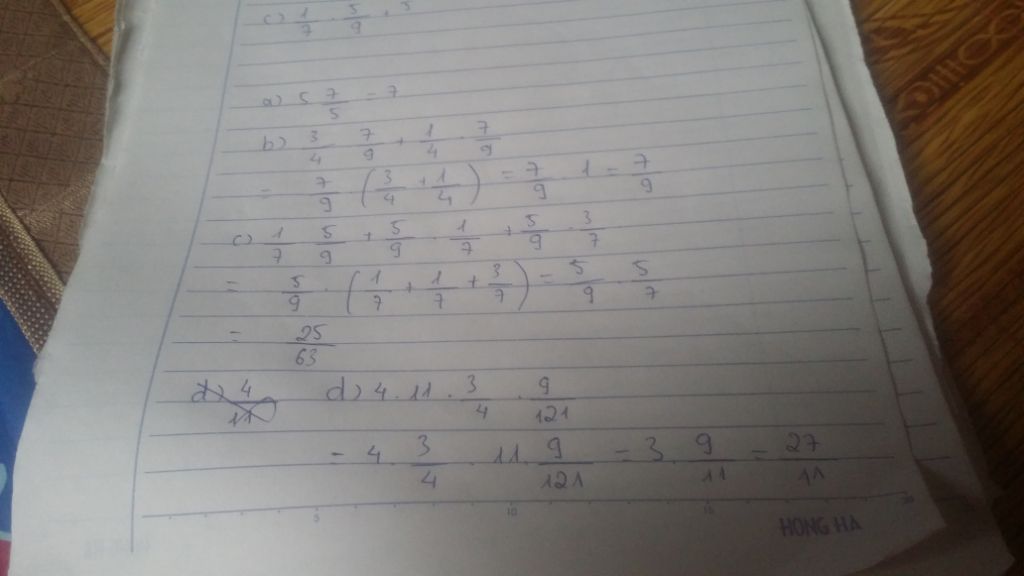 c) 1/7 . 5/9 + 5
a) 5 7/5 = 7
b) 3/4 7/9 + 1/4 . 7/9
= 7/9 (3/4 + 1/4) = 7/9 . 1 = 7/9
c) 1/7 5/9 + 5/9 . 1/7 + 5/9 . 3/7
= 5/9 . (1/7 + 1/7 + 3/7) = 5/9 . 5/7
= 25/63
d) 4/11 d) 4 . 11 . 3/4 . 9/121
= 4 . 3/4 . 11 . 9/121 = 3 . 9/11 = 27/11
5 10 15 20
HONG HA